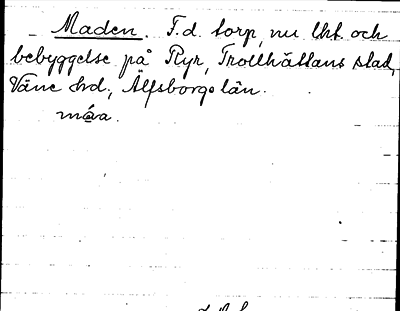 Maden. F.d. torp, nu lht och
bebyggelse på Ryr, Trollhättans stad,
Väne hd, Älfsborgs län.